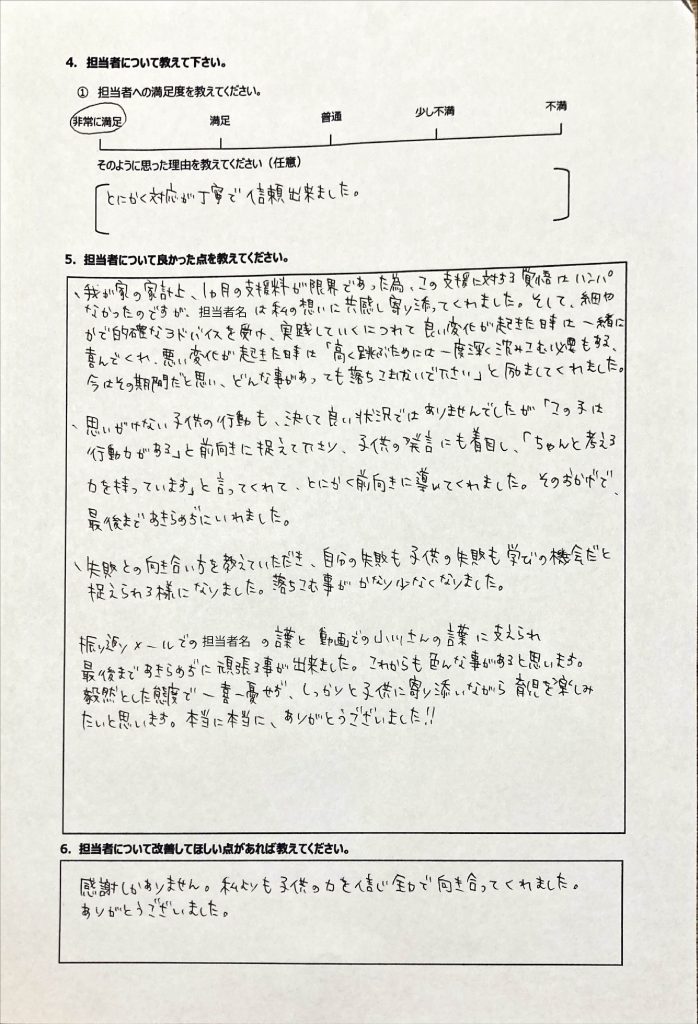 4. 担当者について教えて下さい。
① 担当者への満足度を教えてください。
非常に満足 満足 普通 少し不満 不満
そのように思った理由を教えてください(任意)
とにかく対応が丁寧で信頼出来ました。
5. 担当者について良かった点を教えてください。
、我が家の家計上、1ヵ月の支援料が限界であった為、この支援に対する覚悟はハンパ
なかったのですが、担当者名 は私の想いに共感し寄り添ってくれました。そして、細や
かで的確なアドバイスを受け、実践していくにつれて良い変化が起きた時は一緒に
喜んでくれ、悪い変化が起きた時は「高く跳ぶためには一度深く沈みこむ必要もある、
今はその期間だと思い、どんな事があっても落ちこまないで下さい」と励ましてくれました。
、思いがけない子供の行動も、決して良い状況ではありませんでしたが「この子は
行動力がある」と前向きに捉えて下さり、子供の発言にも着目し、「ちゃんと考える
力を持っています」と言ってくれて、とにかく前向きに導いてくれました。そのおかげで、
最後まであきらめずにいれました。
、失敗との向き合い方を教えていただき、自分の失敗も子供の失敗も学びの機会だと
捉えられる様になりました。落ちこむ事がかなり少なくなりました。
振り返りメールでの 担当者名 の言葉と動画での小川さんの言葉に支えられ
最後まであきらめずに頑張る事が出来ました。これからも色んな事があると思います。
毅然とした態度で一喜一憂せず、しっかりと子供に寄り添いながら育児を楽しみ
たいと思います。本当に本当に、ありがとうございました!!
6. 担当者について改善してほしい点があれば教えてください。
感謝しかありません。私よりも子供の力を信じ全力で向き合ってくれました。
ありがとうございました。